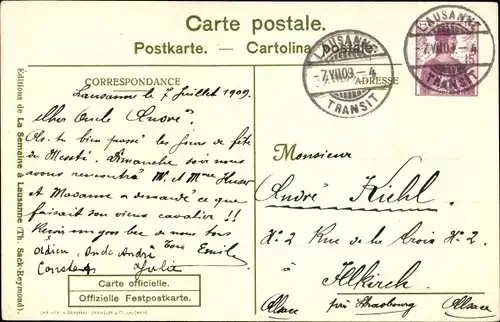 Carte postale.
Postkarte. — Cartolina postale.
LAUSANNE
7.VII.09.–4
TRANSIT
LAUSANNE
7.VII.09.–4
TRANSIT
15
CORRESPONDANCE
ADRESSE
Lausanne le 7 Juillet 1909.
Cher Oncle André.
As-tu bien passé les jours de fête
de Dimanche soir nous
avons rencontré M. et Mme
et Madame a demandé ce que
faisait son vieux cavalier !!
Reçois un gros bec de nous tous
adieu, Oncle André Emile
Constant Julie
Monsieur
André Kiehl
No 2 Rue de la Croix No 2.
à
Illkirch
Alsace près Strasbourg Alsace
Carte officielle.
Offizielle Festpostkarte.
Editions de La Semaine à Lausanne (Th. Sack-Reymond).